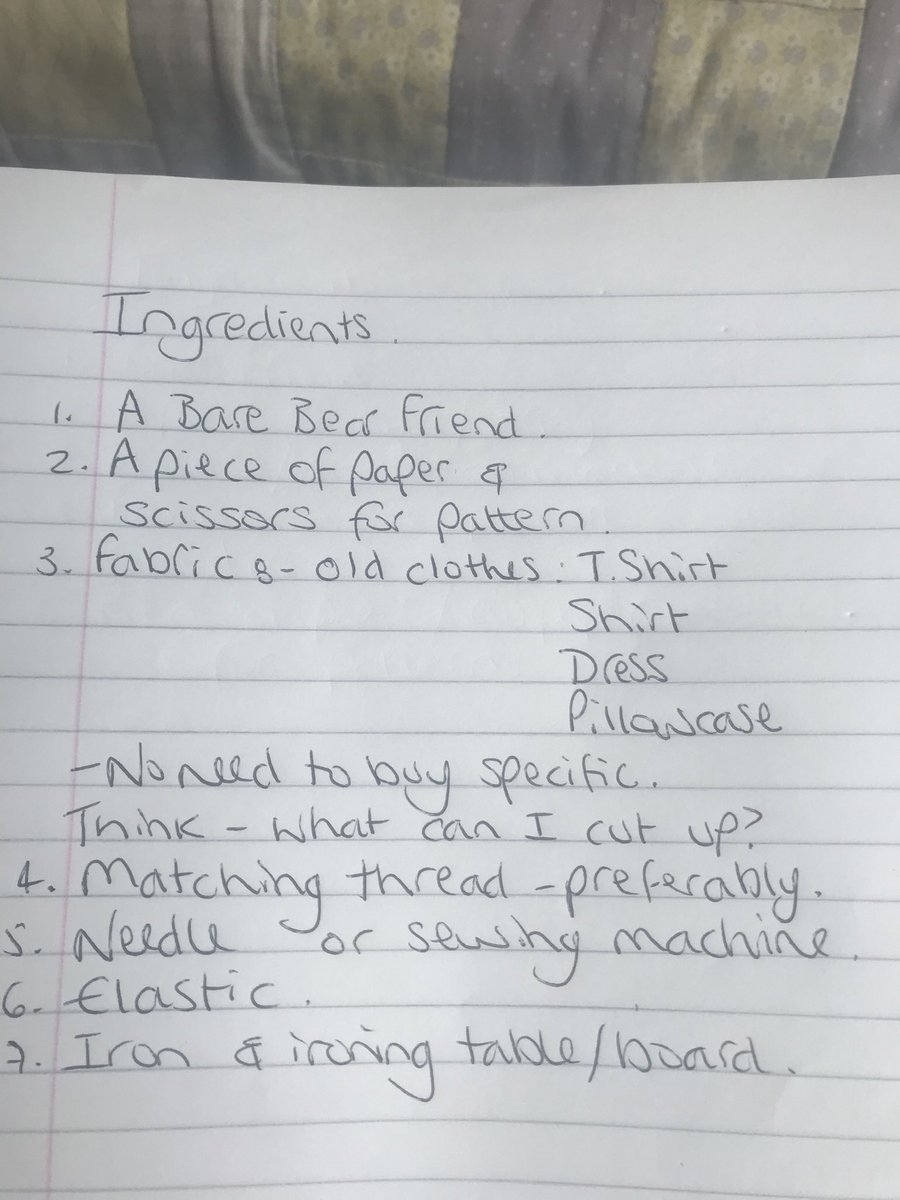 Ingredients.
1. A Bare Bear friend.
2. A piece of paper &
scissors for pattern.
3. fabric &- old clothes: T.Shirt
Shirt
Dress
Pillowcase
- No need to buy specific.
Think - what can I cut up?
4. Matching thread - preferably.
5. Needle or sewing machine.
6. Elastic.
7. Iron & ironing table/board.